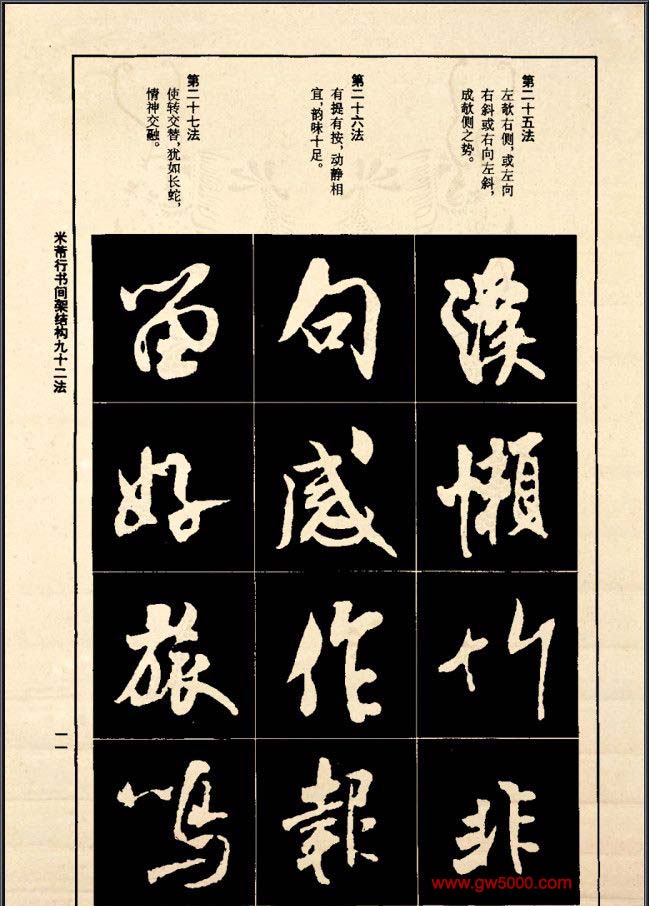 第二十五法
左欹右侧,或左向
右斜或右向左斜,
成欹侧之势。
漢
懶
竹
非
第二十六法
有提有按,动静相
宜,韵味十足。
句
感
作
報
第二十七法
使转交替,犹如长蛇,
情神交融。
留
好
旅
鳴
米芾行书间架结构九十二法
一一
www.gw5000.com